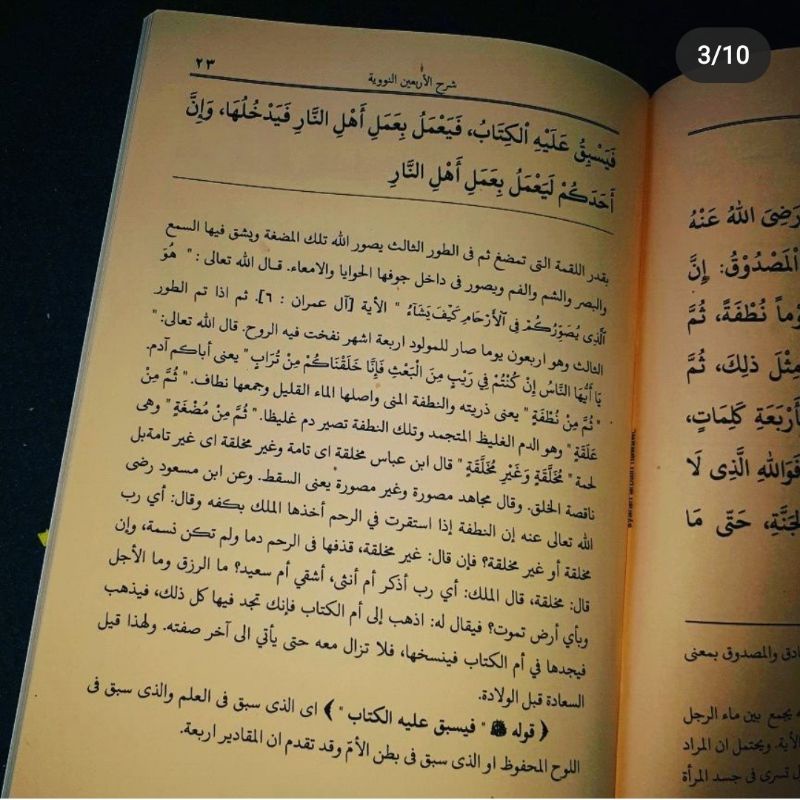 3/10
شرح الأربعين النووية
٢٣
فَيَسْبِقُ عَلَيْهِ الْكِتَابُ، فَيَعْمَلُ بِعَمَلِ أَهْلِ النَّارِ فَيَدْخُلُهَا، وَإِنَّ
أَحَدَكُمْ لَيَعْمَلُ بِعَمَلِ أَهْلِ النَّارِ
بقدر اللقمة التى تمضغ ثم فى الطور الثالث يصور الله تلك المضغة ويشق فيها السمع
والبصر والشم والفم ويصور فى داخل جوفها الحوايا والامعاء. قال الله تعالى : " هُوَ
الَّذِى يُصَوِّرُكُمْ فِى الْأَرْحَامِ كَيْفَ يَشَاءُ " الأية [آل عمران : ٦]. ثم اذا تم الطور
الثالث وهو اربعون يوما صار للمولود اربعة اشهر نفخت فيه الروح. قال الله تعالى: "
يَا أَيُّهَا النَّاسُ إِنْ كُنْتُمْ فِى رَيْبٍ مِنَ الْبَعْثِ فَإِنَّا خَلَقْنَاكُمْ مِنْ تُرَابٍ " يعنى أباكم آدم.
" ثُمَّ مِنْ نُطْفَةٍ " يعنى ذريته والنطفة المنى واصلها الماء القليل وجمعها نطاف. " ثُمَّ مِنْ
عَلَقَةٍ " وهو الدم الغليظ المتجمد وتلك النطفة تصير دم غليظا. " ثُمَّ مِنْ مُضْغَةٍ " وهى
لحمة " مُخَلَّقَةٍ وَغَيْرِ مُخَلَّقَةٍ " قال ابن عباس مخلقة اى تامة وغير مخلقة اى غير تامة بل
ناقصة الخلق. وقال مجاهد مصورة وغير مصورة يعنى السقط. وعن ابن مسعود رضى
الله تعالى عنه إن النطفة إذا استقرت في الرحم أخذها الملك بكفه وقال: أي رب
مخلقة أو غير مخلقة؟ فإن قال: غير مخلقة، قذفها فى الرحم دما ولم تكن نسمة، وإن
قال: مخلقة، قال الملك: أي رب أذكر أم أنثى، أشقي أم سعيد؟ ما الرزق وما الأجل
وبأي أرض تموت؟ فيقال له: اذهب إلى أم الكتاب فإنك تجد فيها كل ذلك، فيذهب
فيجدها في أم الكتاب فينسخها، فلا تزال معه حتى يأتي الى آخر صفته. ولهذا قيل
السعادة قبل الولادة.
﴿ قوله ﷺ " فيسبق عليه الكتاب " ﴾ اى الذى سبق فى العلم والذى سبق فى
اللوح المحفوظ او الذى سبق فى بطن الأمّ وقد تقدم ان المقادير اربعة.
رَضِىَ اللهُ عَنْهُ
الْمَصْدُوْقُ: إِنَّ
نُطْفَةً، ثُمَّ
مِثْلَ ذلِكَ، ثُمَّ
أَرْبَعَةِ كَلِمَاتٍ،
فَوَاللهِ الَّذِى لَا
الْجَنَّةِ، حَتَّى مَا
والمصدوق بمعنى
يجمع بين ماء الرجل
الأية. ويحتمل ان المراد
تسرى فى جسد المرأة